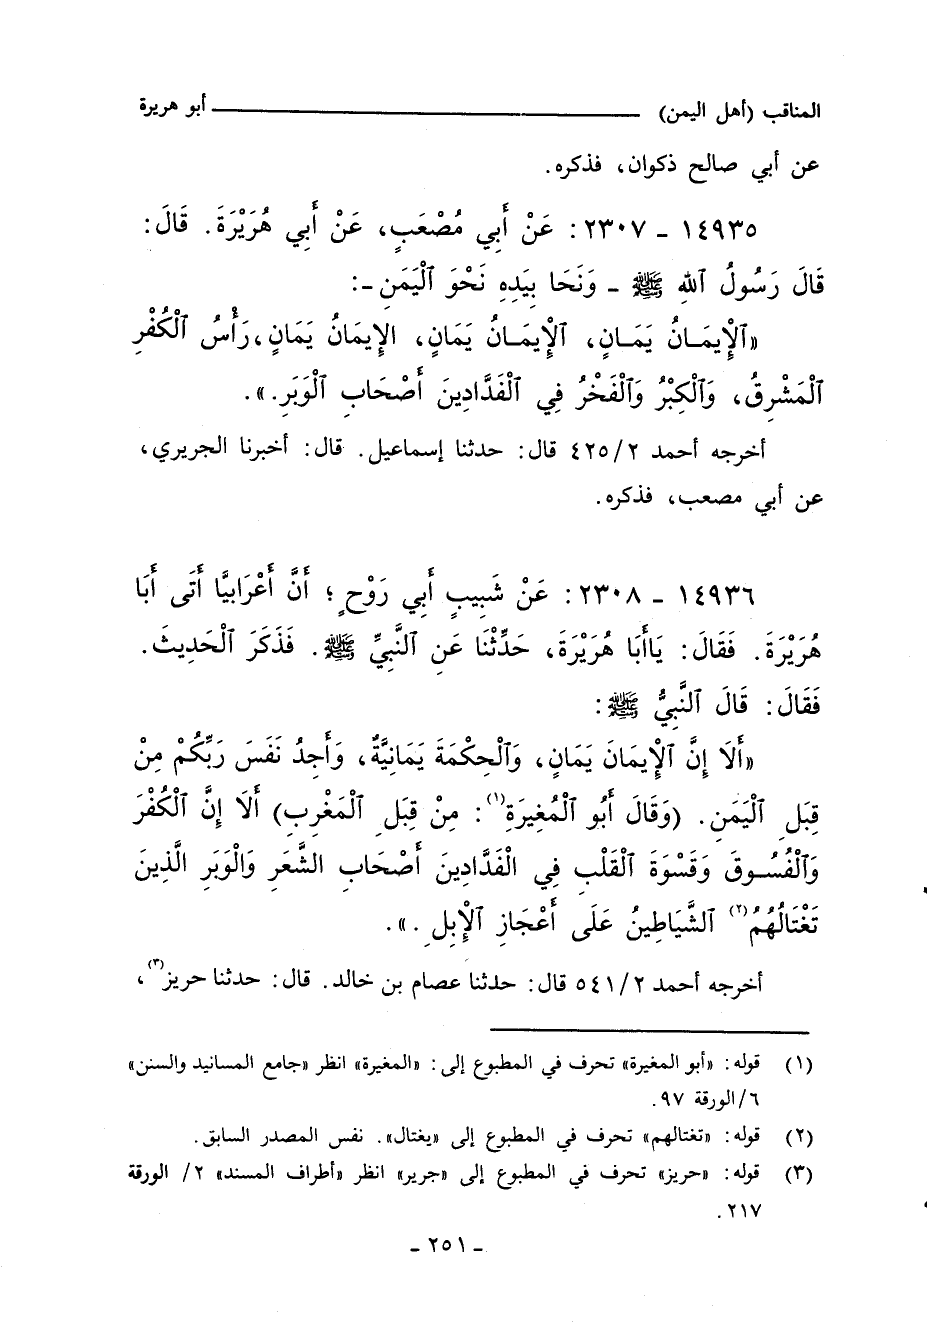 المناقب (أهل اليمن) ـــــــــــــــــــــ أبو هريرة
عن أبي صالح ذكوان، فذكره.
١٤٩٣٥ ـ ٢٣٠٧ : عَنْ أَبِي مُصْعَبٍ، عَنْ أَبِي هُرَيْرَةَ. قَالَ:
قَالَ رَسُولُ ٱللهِ ﷺ ـ وَنَحَا بِيَدِهِ نَحْوَ ٱلْيَمَنِ ـ:
«ٱلْإِيمَـانُ يَمَـانٍ، ٱلْإِيمَـانُ يَمَانٍ، الإِيمَانُ يَمَانٍ، رَأْسُ ٱلْكُفْرِ
ٱلْمَشْرِقُ، وَٱلْكِبْرُ وَٱلْفَخْرُ فِي ٱلْفَدَّادِينَ أَصْحَابِ ٱلْوَبَرِ.».
أخرجه أحمد ٤٢٥/٢ قال: حدثنا إسماعيل. قال: أخبرنا الجريري،
عن أبي مصعب، فذكره.
١٤٩٣٦ ـ ٢٣٠٨ : عَنْ شَبِيبٍ أَبِي رَوْحٍ؛ أَنَّ أَعْرَابِيًّا أَتَى أَبَا
هُرَيْرَةَ. فَقَالَ: يَاأَبَا هُرَيْرَةَ، حَدِّثْنَا عَنِ ٱلنَّبِيِّ ﷺ. فَذَكَرَ ٱلْحَدِيثَ.
فَقَالَ: قَالَ ٱلنَّبِيُّ ﷺ:
«أَلَا إِنَّ ٱلْإِيمَانَ يَمَانٍ، وَٱلْحِكْمَةَ يَمَانِيَّةٌ، وَأَجِدُ نَفَسَ رَبِّكُمْ مِنْ
قِبَلِ ٱلْيَمَنِ. (وَقَالَ أَبُو ٱلْمُغِيرَةِ(١): مِنْ قِبَلِ ٱلْمَغْرِبِ) أَلَا إِنَّ ٱلْكُفْرَ
وَٱلْفُسُـوقَ وَقَسْوَةَ ٱلْقَلْبِ فِي ٱلْفَدَّادِينَ أَصْحَابِ الشَّعَرِ وَالْوَبَرِ الَّذِينَ
تَغْتَالُهُمُ(٢) ٱلشَّيَاطِينُ عَلَى أَعْجَازِ ٱلْإِبِلِ.».
أخرجه أحمد ٥٤١/٢ قال: حدثنا عصام بن خالد. قال: حدثنا حريز(٣)،
(١) قوله: «أبو المغيرة» تحرف في المطبوع إلى: «المغيرة» انظر «جامع المسانيد والسنن»
٦/الورقة ٩٧.
(٢) قوله: «تغتالهم» تحرف في المطبوع إلى «يغتال». نفس المصدر السابق.
(٣) قوله: «حريز» تحرف في المطبوع إلى «جرير» انظر «أطراف المسند» ٢/ الورقة
٢١٧.
ـ ٢٥١ ـ